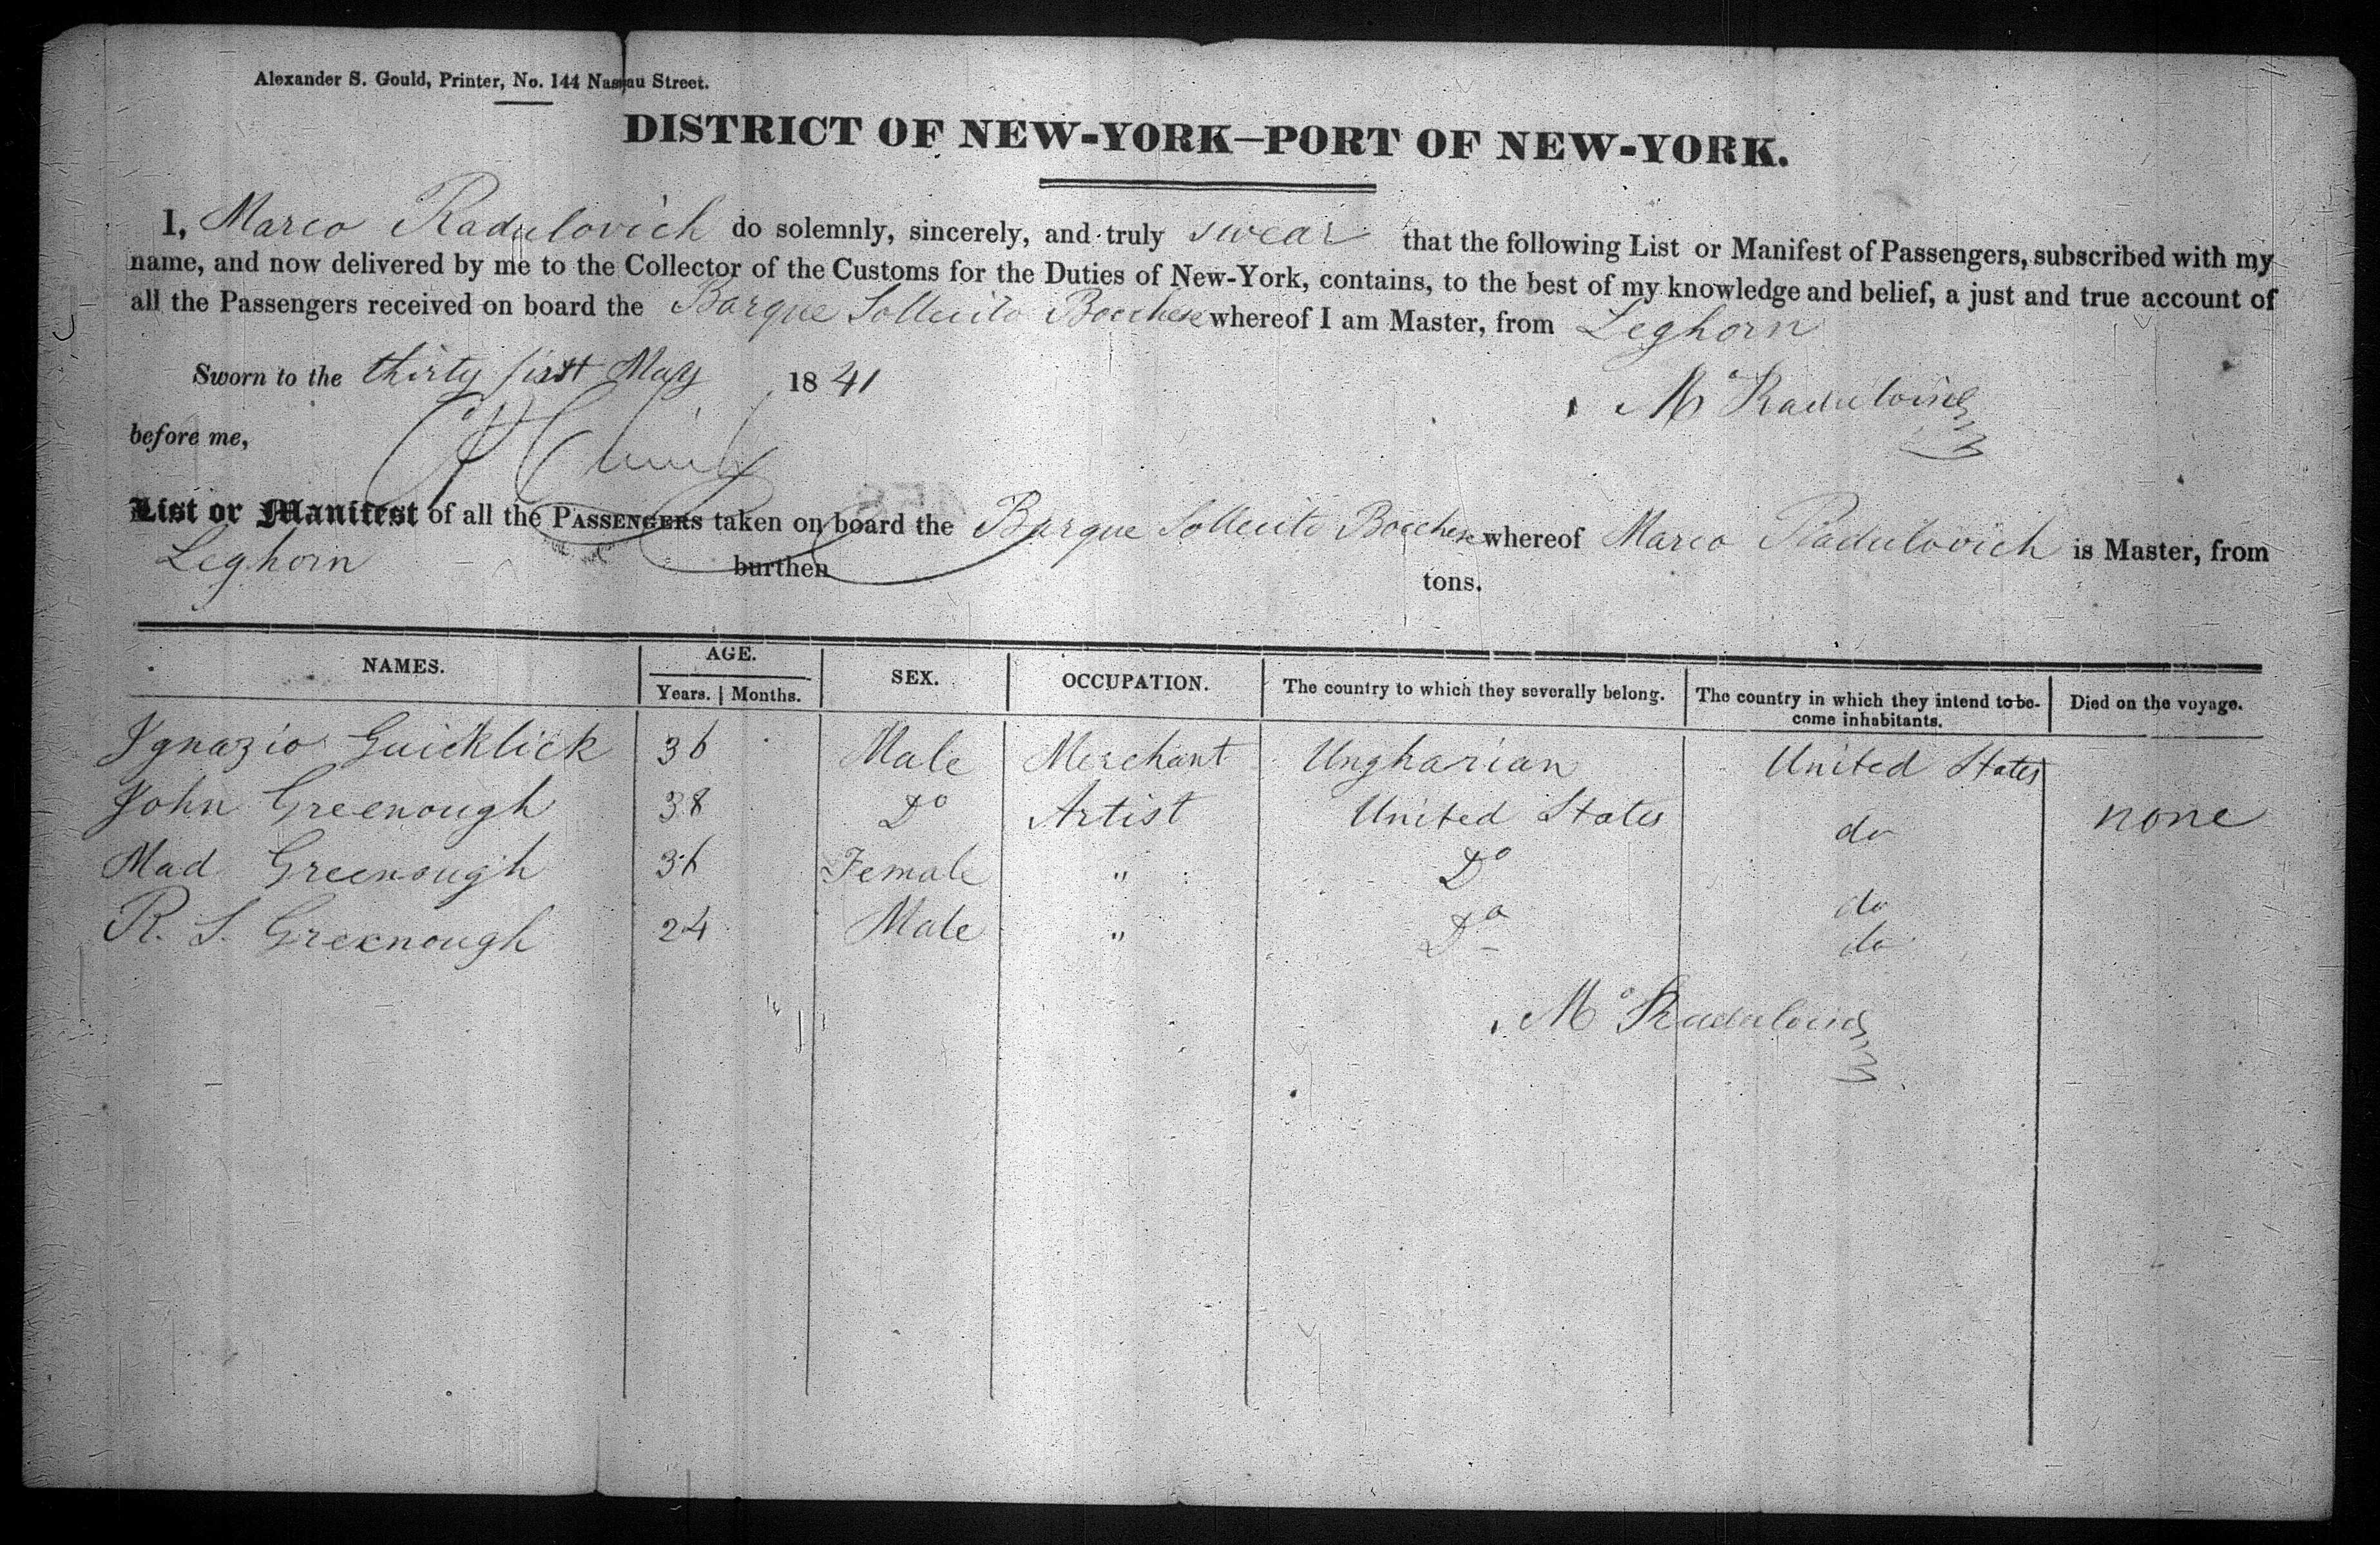 Alexander S. Gould, Printer, No. 144 Nassau Street.
DISTRICT OF NEW-YORK—PORT OF NEW-YORK.
I, Marco Radulovich do solemnly, sincerely, and truly swear that the following List or Manifest of Passengers, subscribed with my
name, and now delivered by me to the Collector of the Customs for the Duties of New-York, contains, to the best of my knowledge and belief, a just and true account of
all the Passengers received on board the Barque Sollecito Bocchese whereof I am Master, from Leghorn
Sworn to the thirty first May 1841
before me,
List or Manifest of all the PASSENGERS taken on board the Barque Sollecito Bocchese whereof Marco Radulovich is Master, from
Leghorn burthen tons.
NAMES. AGE. Years. Months. SEX. OCCUPATION. The country to which they severally belong. The country in which they intend to be- come inhabitants. Died on the voyage.
Ignazio Guicklick 36 Male Merchant Ungharian United States
John Greenough 38 Do Artist United States do none
Mad Greenough 36 Female " Do do
R. S. Greenough 24 Male " Do do